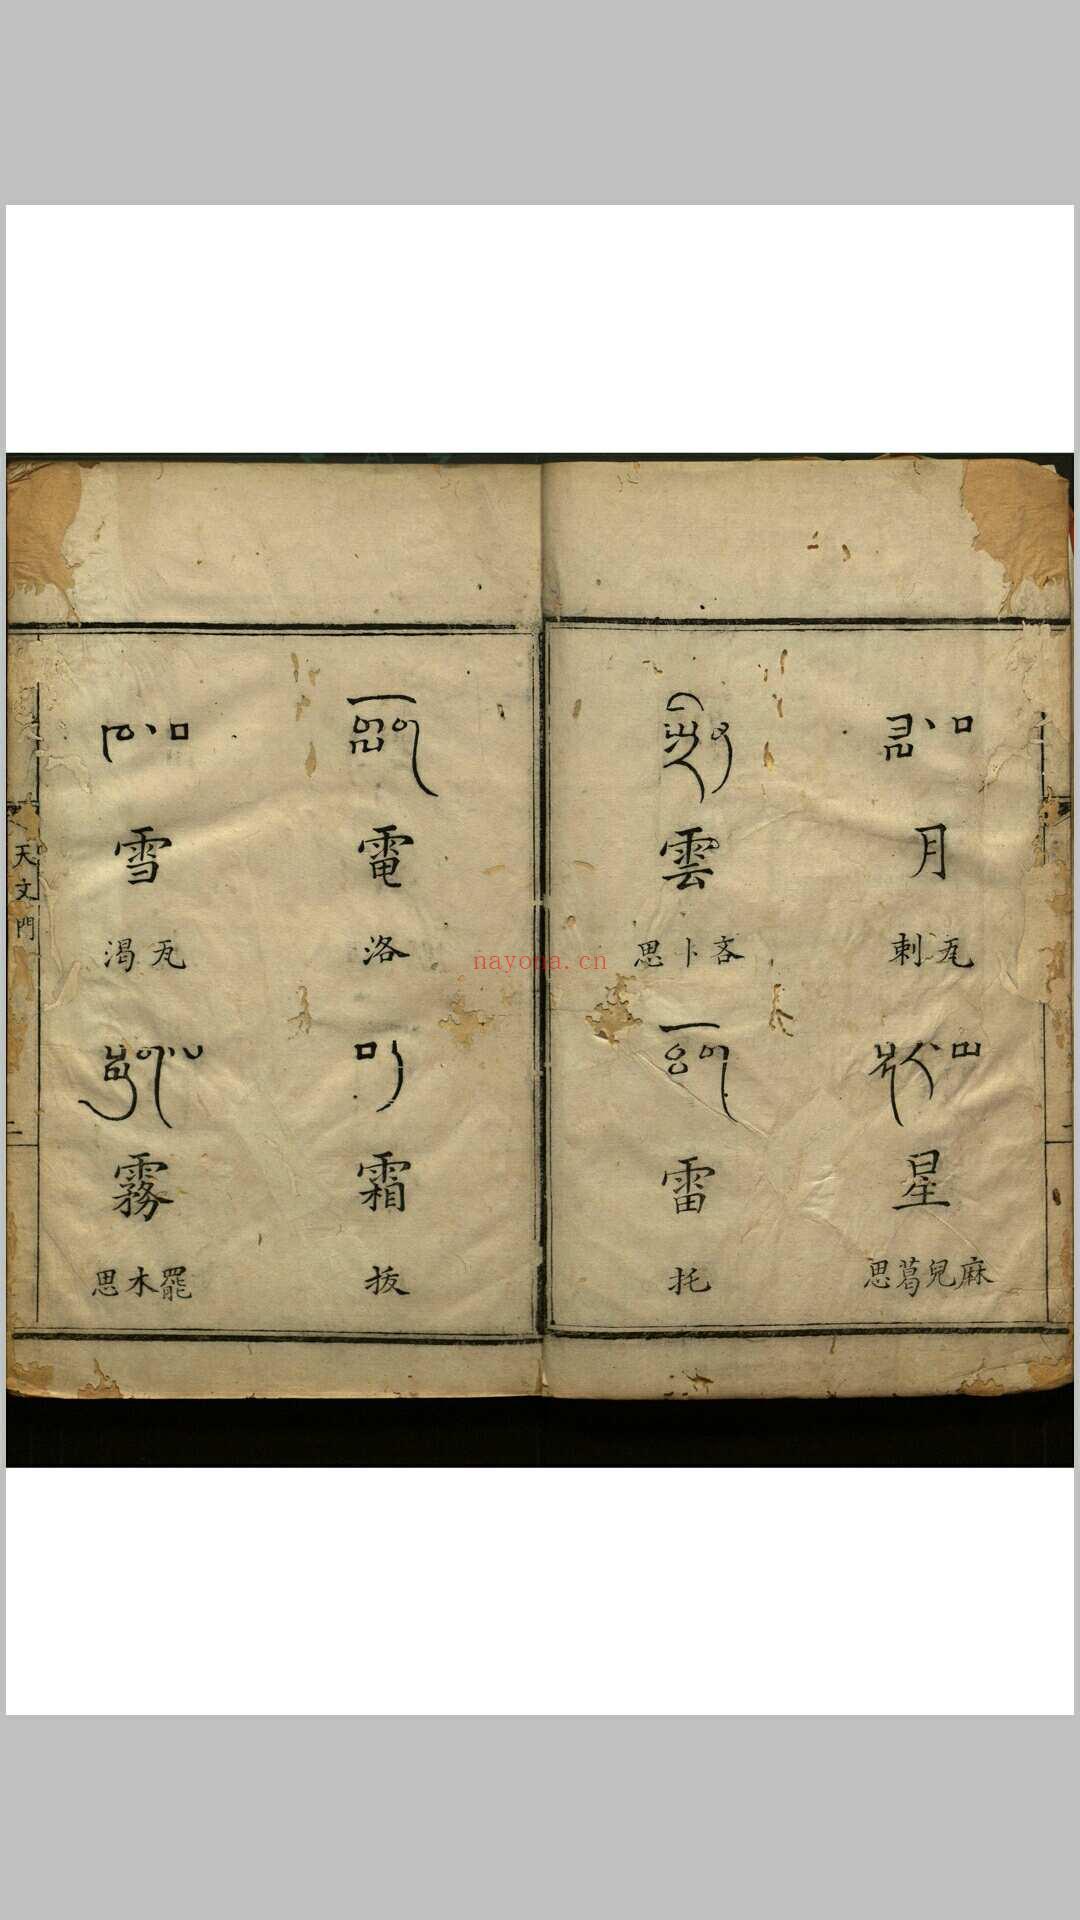 ཟླ་བ
月
剌瓦
སྐར་མ
星
思葛兒麻
སྤྲིན
雲
思卜吝
ཐོག
雷
托
གློག
電
洛
霜
拔
ཁ་བ
雪
渴瓦
སྨུག་པ
霧
思木罷
天文門
二
nayona.cn